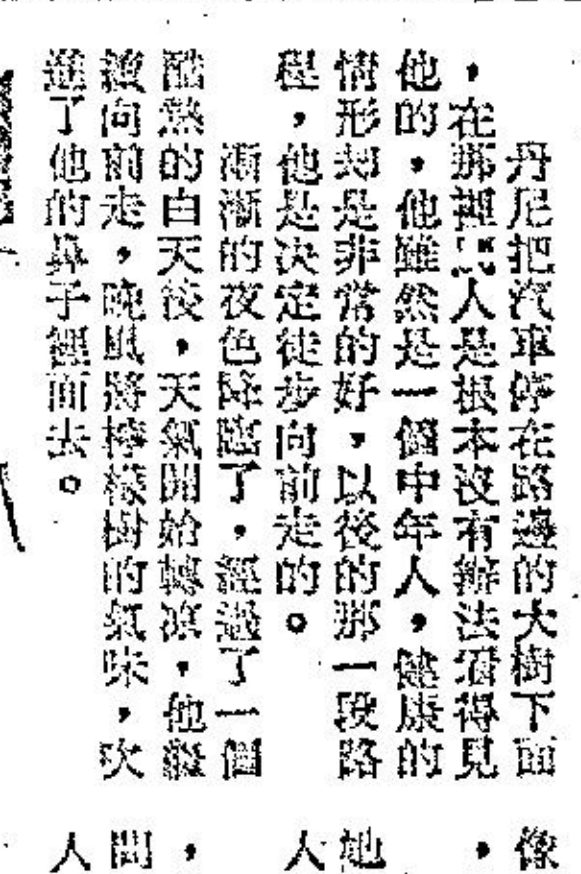 丹尼把汽車停在路邊的大樹下面
，在那裡別人是根本沒有辦法看得見
他的，他雖然是一個中年人，健康的
情形却是非常的好，以後的那一段路
程，他是决定徒步向前走的。
漸漸的夜色降臨了，經過了一個
酷熱的白天後，天氣開始轉凉，他繼
續向前走，晚風將檸檬樹的氣味，吹
進了他的鼻子裡面去。
像
，
地
人
，
間
人